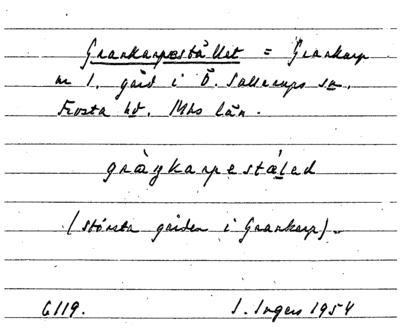 Grankarpestället = Grankarp
nr 1. gård i Ö. Sallerups sn.
Frosta hd. Mhs län.
gràŋkarpestä̀led
(största gården i Grankarp).
6119. I. Ingers 1954